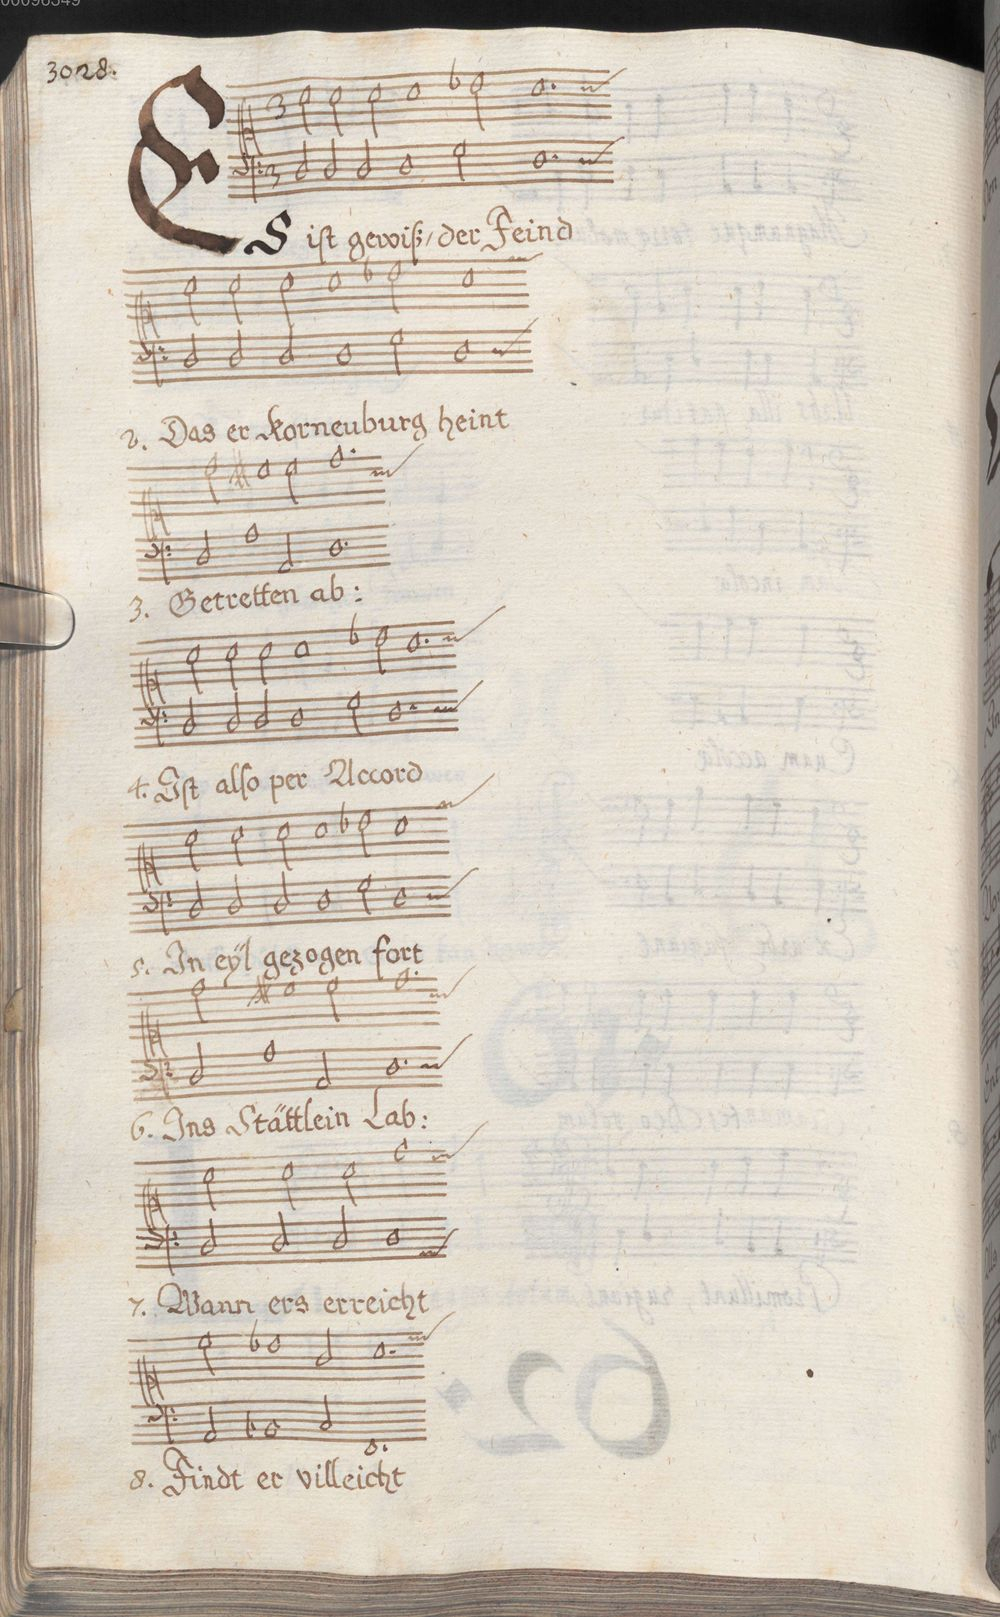 3028.
ES ist gewiß, der Feind
2. Das er Korneuburg heint
3. Getretten ab:
4. Ist also per Accord
5. In eÿl gezogen fort
6. Ins Stättlein Lab:
7. Wann ers erreicht
8. Findt er villeicht